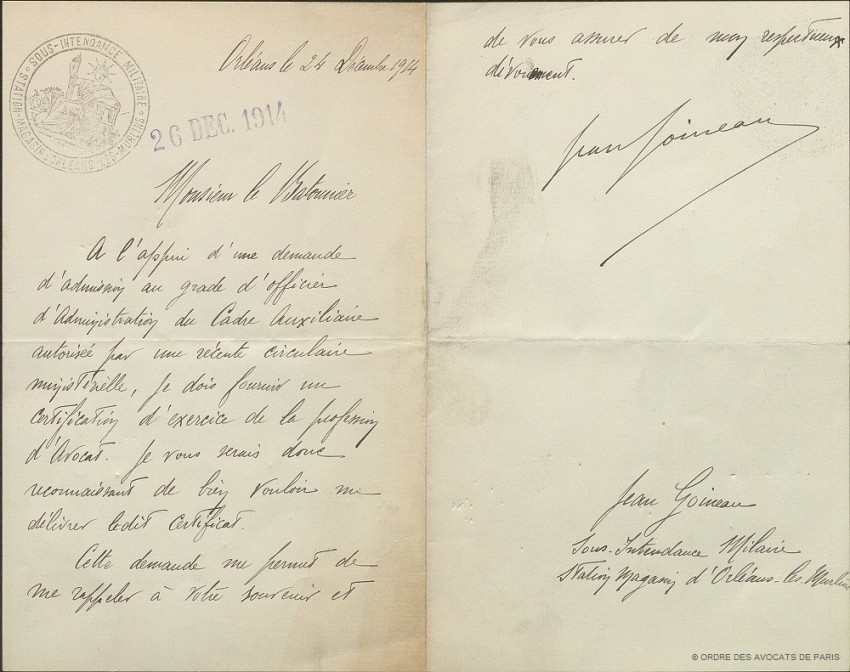 SOUS-INTENDANCE MILITAIRE
STATION-MAGASIN D'ORLÉANS-LES-MURLINS
Orléans le 24 Décembre 1914
26 DEC. 1914
Monsieur le Bâtonnier
A l'appui d'une demande
d'admission au grade d'officier
d'Administration du Cadre Auxiliaire
autorisée par une récente circulaire
ministérielle, je dois fournir un
certification d'exercice de la profession
d'Avocat. Je vous serais donc
reconnaissant de bien vouloir me
délivrer ledit certificat.
Cette demande me permet de
me rappeler à votre souvenir et
de vous assurer de mon respectueux
dévouement.
Jean Goineau
Jean Goineau
Sous-Intendance Milaire
Station Magasin d'Orléans-les-Murlins
© ORDRE DES AVOCATS DE PARIS